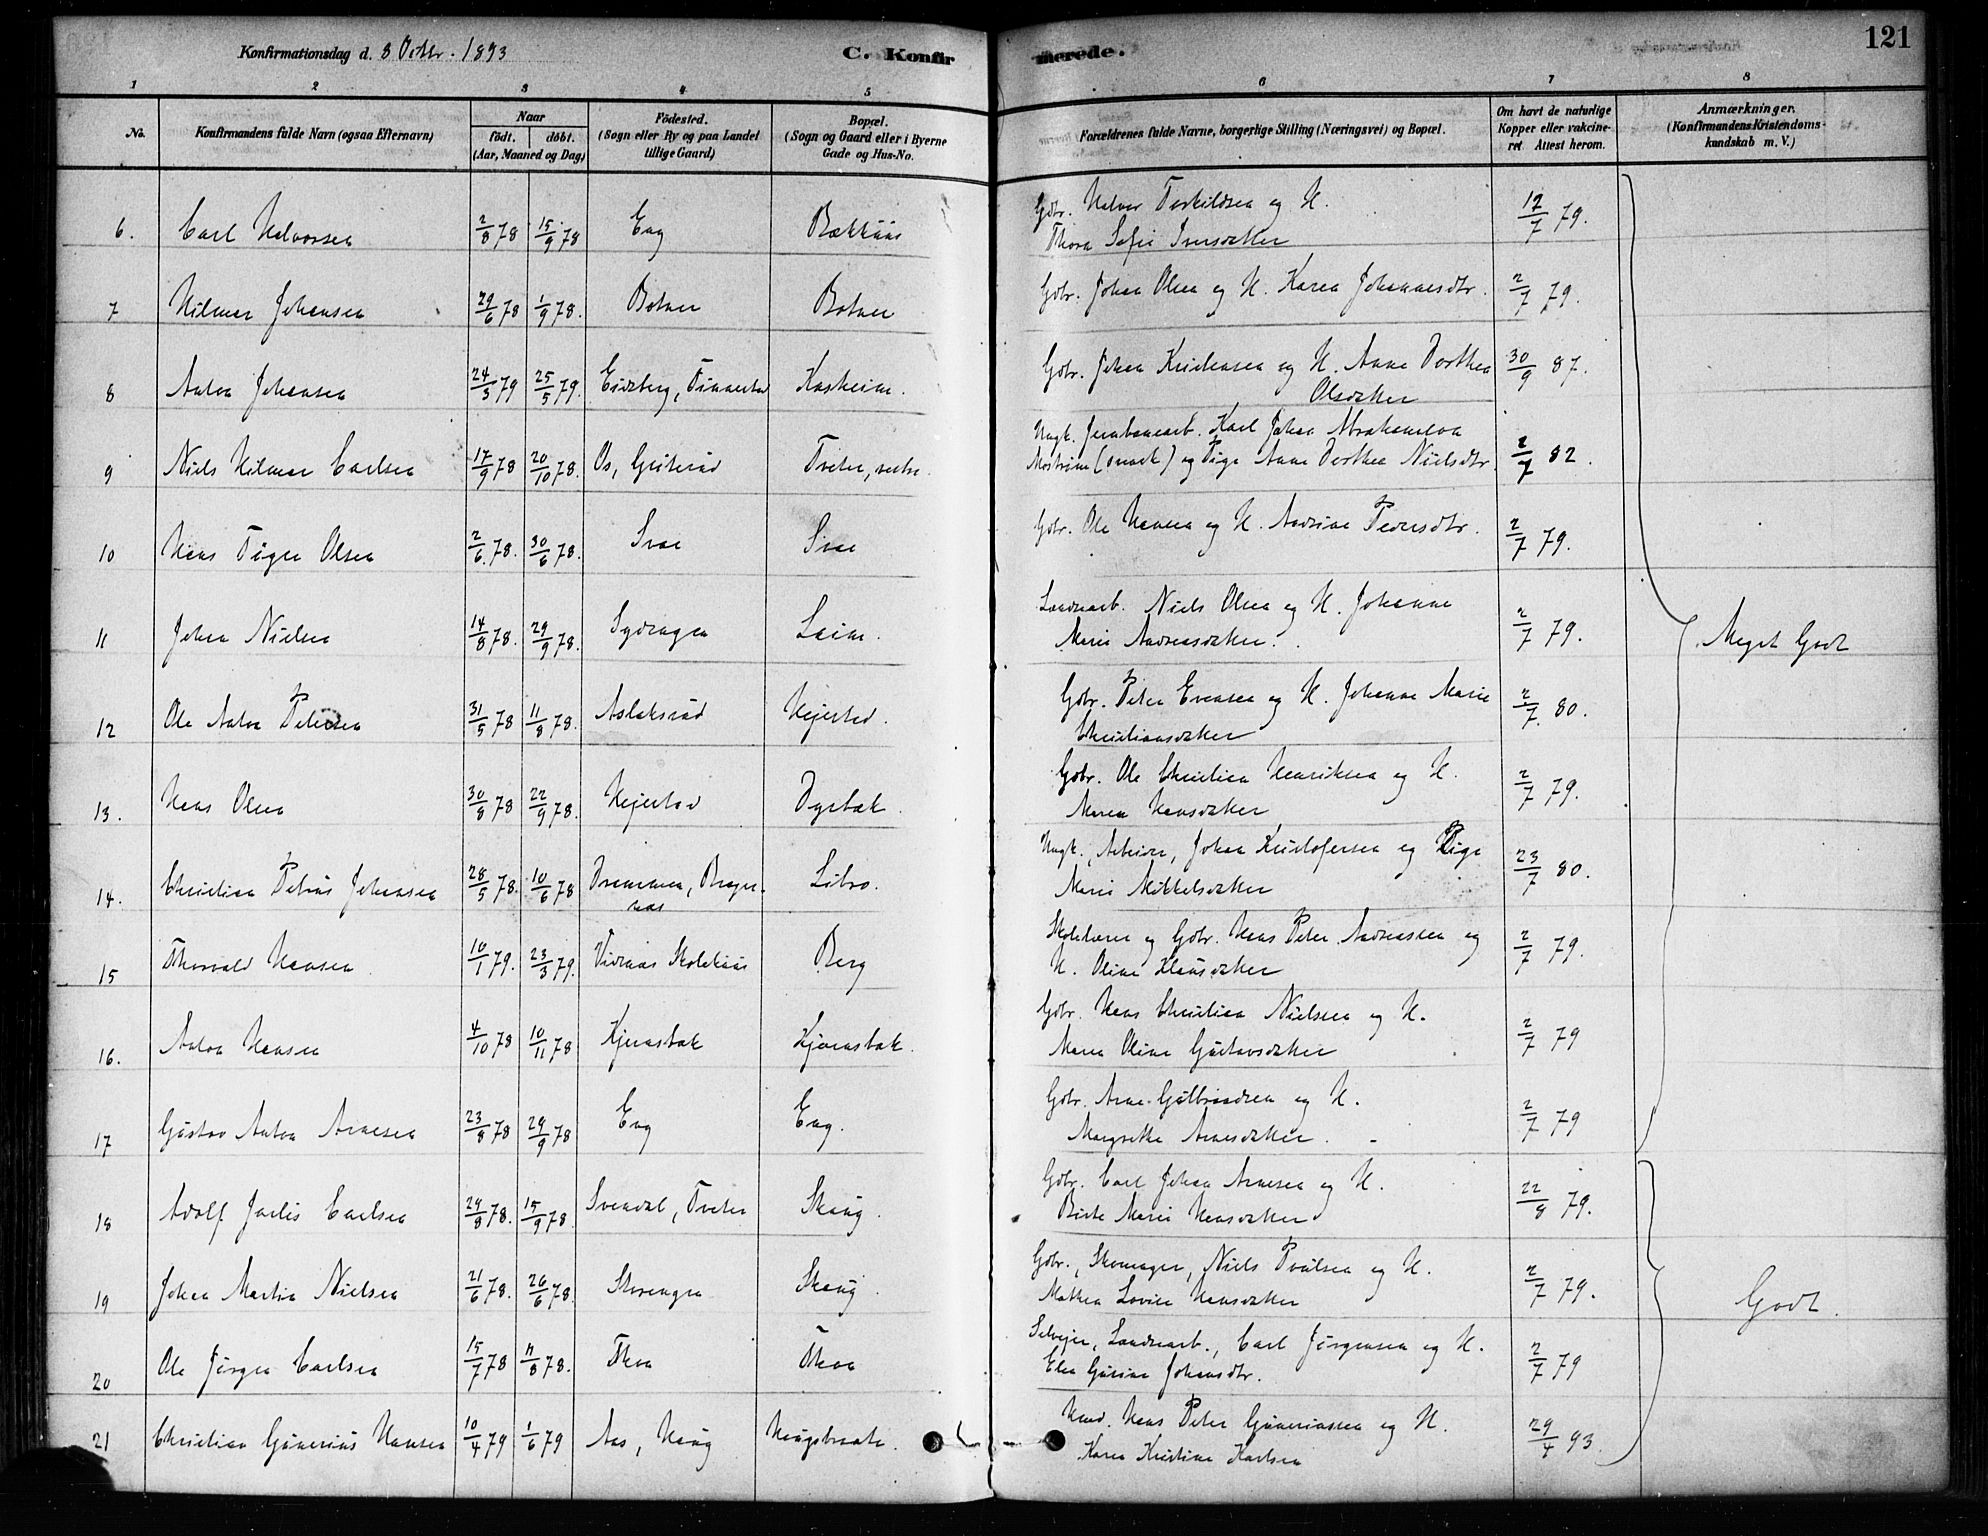 Konfirmationsdag d. 8 Octbr. 1893
C. Konfir merede.
121
1 2 3 4 5 6 7 8
No.
Konfirmandens fulde Navn (ogsaa Efternavn)
Naar
født. døbt.
(Aar, Maaned og Dag)
Fødested.
(Sogn eller By og paa Landet
tillige Gaard)
Bopæl.
(Sogn og Gaard eller i Byerne
Gade og Hus-No.
Forældrenes fulde Navne, borgerlige Stilling (Næringsvei) og Bopæl.
Om havt de naturlige
Kopper eller vakcine-
ret. Attest herom.
Anmærkninger.
(Konfirmandens Kristendoms-
kundskab m. V.)
6. Carl Halvorsen 2/8 78 15/9 78 Eng Bækkhus Gbr. Halvor Terkildsen og H.
Thora Sofie Iversdatter 12/7 79.
7 Hilmar Johansen 29/6 78 1/9 78. Botner Botner Gbr. Johan Olsen og H. Karen Johannesdtr. 2/7 79.
8 Anton Johansen 24/3 79 25/5 79. Eidsberg, Kasheim. Gbr. Johan Kristensen og H. Anne Dorthea
Olsdatter 30/9 87.
9 Niels Hilmar Carlsen 17/9 78 20/10 78. Os, Tveter, vestre. Ungk. Jernbanearb. Karl Johan
og Pige Anne Dorthea Nielsdtr. 2/7 82.
10 Hans Olsen 2/6. 78. 30/6 78. Svae Svae Gbr. Ole Hansen og H. Andrine Pedersdtr. 2/7 79.
11 Johan Nielsen 14/8 78. 29/9 78. Sydengen Leim. Landarb. Niels Olsen og H. Johanne
Marie Andreasdatter. 2/7 79.
Meget Godt
12 Ole Anton Petersen 31/5 78 11/8 78. Aslaksrud Hejestad. Gbr. Peter Evensen og H. Johanne Marie
Christiansdatter 2/7. 80.
13. Hans Olsen 30/8 78 22/9 78. Hejestad Dyrbæk. Gbr. Ole Christian Henriksen og H.
Maren Hansdatter 2/7 79.
14. Christian Petrus Johansen 28/5 78. 10/6 78 Drammen, Brager-
næs Libro. Ungk., Arbeider, Johan Kristofersen og Pige
Marie Mikkelsdatter 23/7 80.
15 Thorvald Hansen 10/1 79. 23/3 79. Vidnæs Skolehus Berg Skolelærer og Gbr. Hans Peter Andreassen og
H. Oline Klausdatter 2/7 79.
16. Anton Hansen 4/10 78 10/11 78 Kjernsbæk Kjernsbæk. Gbr. Hans Christian Nielsen og H.
Maren Oline Gustavsdatter 2/7 79
17 Gustav Anton Arnesen 23/8 78 29/9 78 Eng Eng. Gbr. Arne Gulbrandsen og H.
Margrethe Arnesdatter. 2/7 79
18 Adolf Julius Carlsen 24/8 78. 15/9 78. Svendal, Tveter Skaug. Gbr. Carl Johan Arnesen og H.
Birte Marie Hansdatter 22/8 79.
19 Johan Martin Nielsen 21/6 78. 26/6 78. Skrengen Skaug. Gbr., Skomager, Niels Poulsen og H.
Mathea Lovise Hansdatter 2/7 79.
Godt.
20 Ole Jørgen Carlsen 15/7 78 11/8 78. Thon Thon Selvejer, Landarb., Carl Jørgensen og H.
Elen Gurine Johansdtr. 2/7 79
21 Christian Gunerius Hansen 10/4 79 1/6 79 Aas, Haug Haugsbraate. Hmd. Hans Peter Gunerissen og H.
Karen Kristine Karlsen 29/4 93.